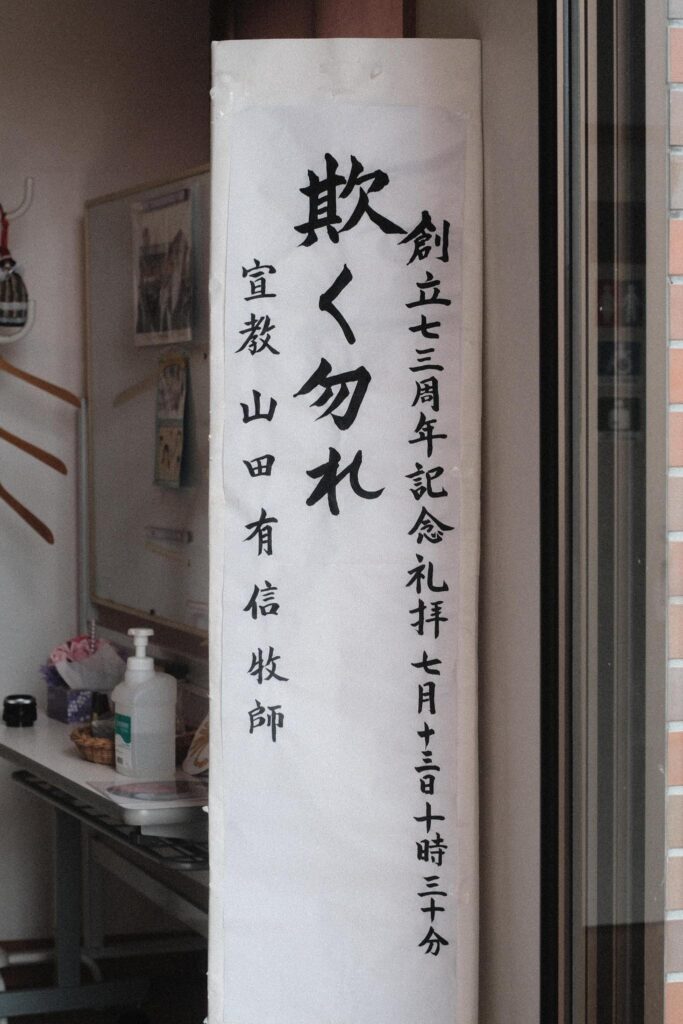 創立七三周年記念礼拝 七月十三日十時三十分
欺く勿れ
宣教 山田有信牧師